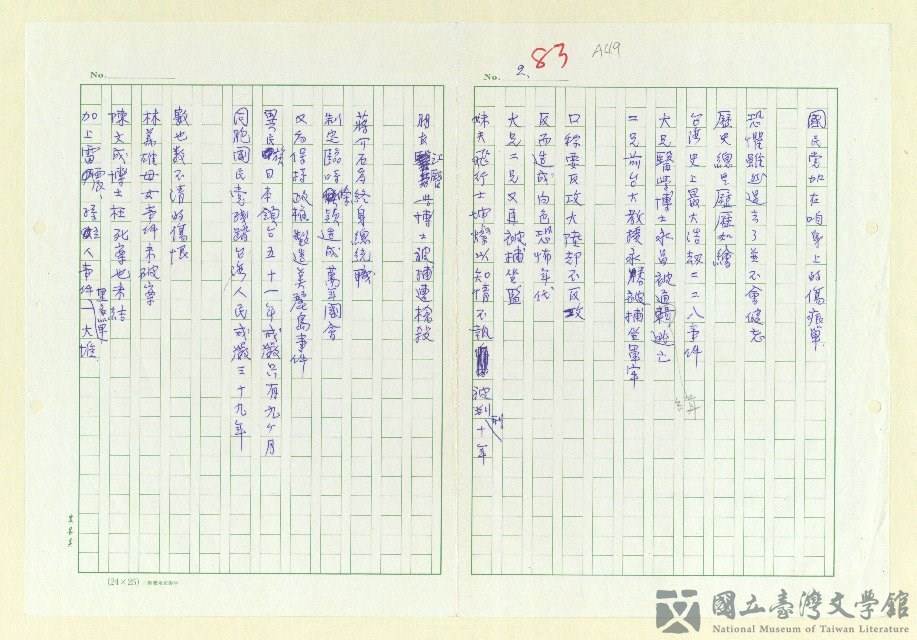 No. 2.
83
A49
國民党加在咱身上的傷痕單
恐懼雖然過去了並不會健忘
歷史總是歷歷如繪
台灣史上最大浩劫二二八事件
大兄醫學博士永昌被通輯逃亡
緝
二兄前台大教授永勝被捕坐軍牢
口称要反攻大陸却不反攻
反而造成白色恐怖年代
大兄二兄又再被捕坐監
妹夫飛行士坤燦以知情不報被判刑十年
No.
朋友 博士被捕遭槍殺
蔣介石身終身總統職
制定臨時條款造成萬年國會
又為保持政權製造美麗島事件
異民族日本領台五十一年戒嚴只有九ヶ月
同胞國民党殘踏台湾人民戒嚴三十九年
數也數不清的傷恨
林義雄母女事件未破案
陳文成博士枉死案也未結
加上雷震、孫立人事件 一大堆
(24×25)
國立臺灣文學館
National Museum of Taiwan Literature